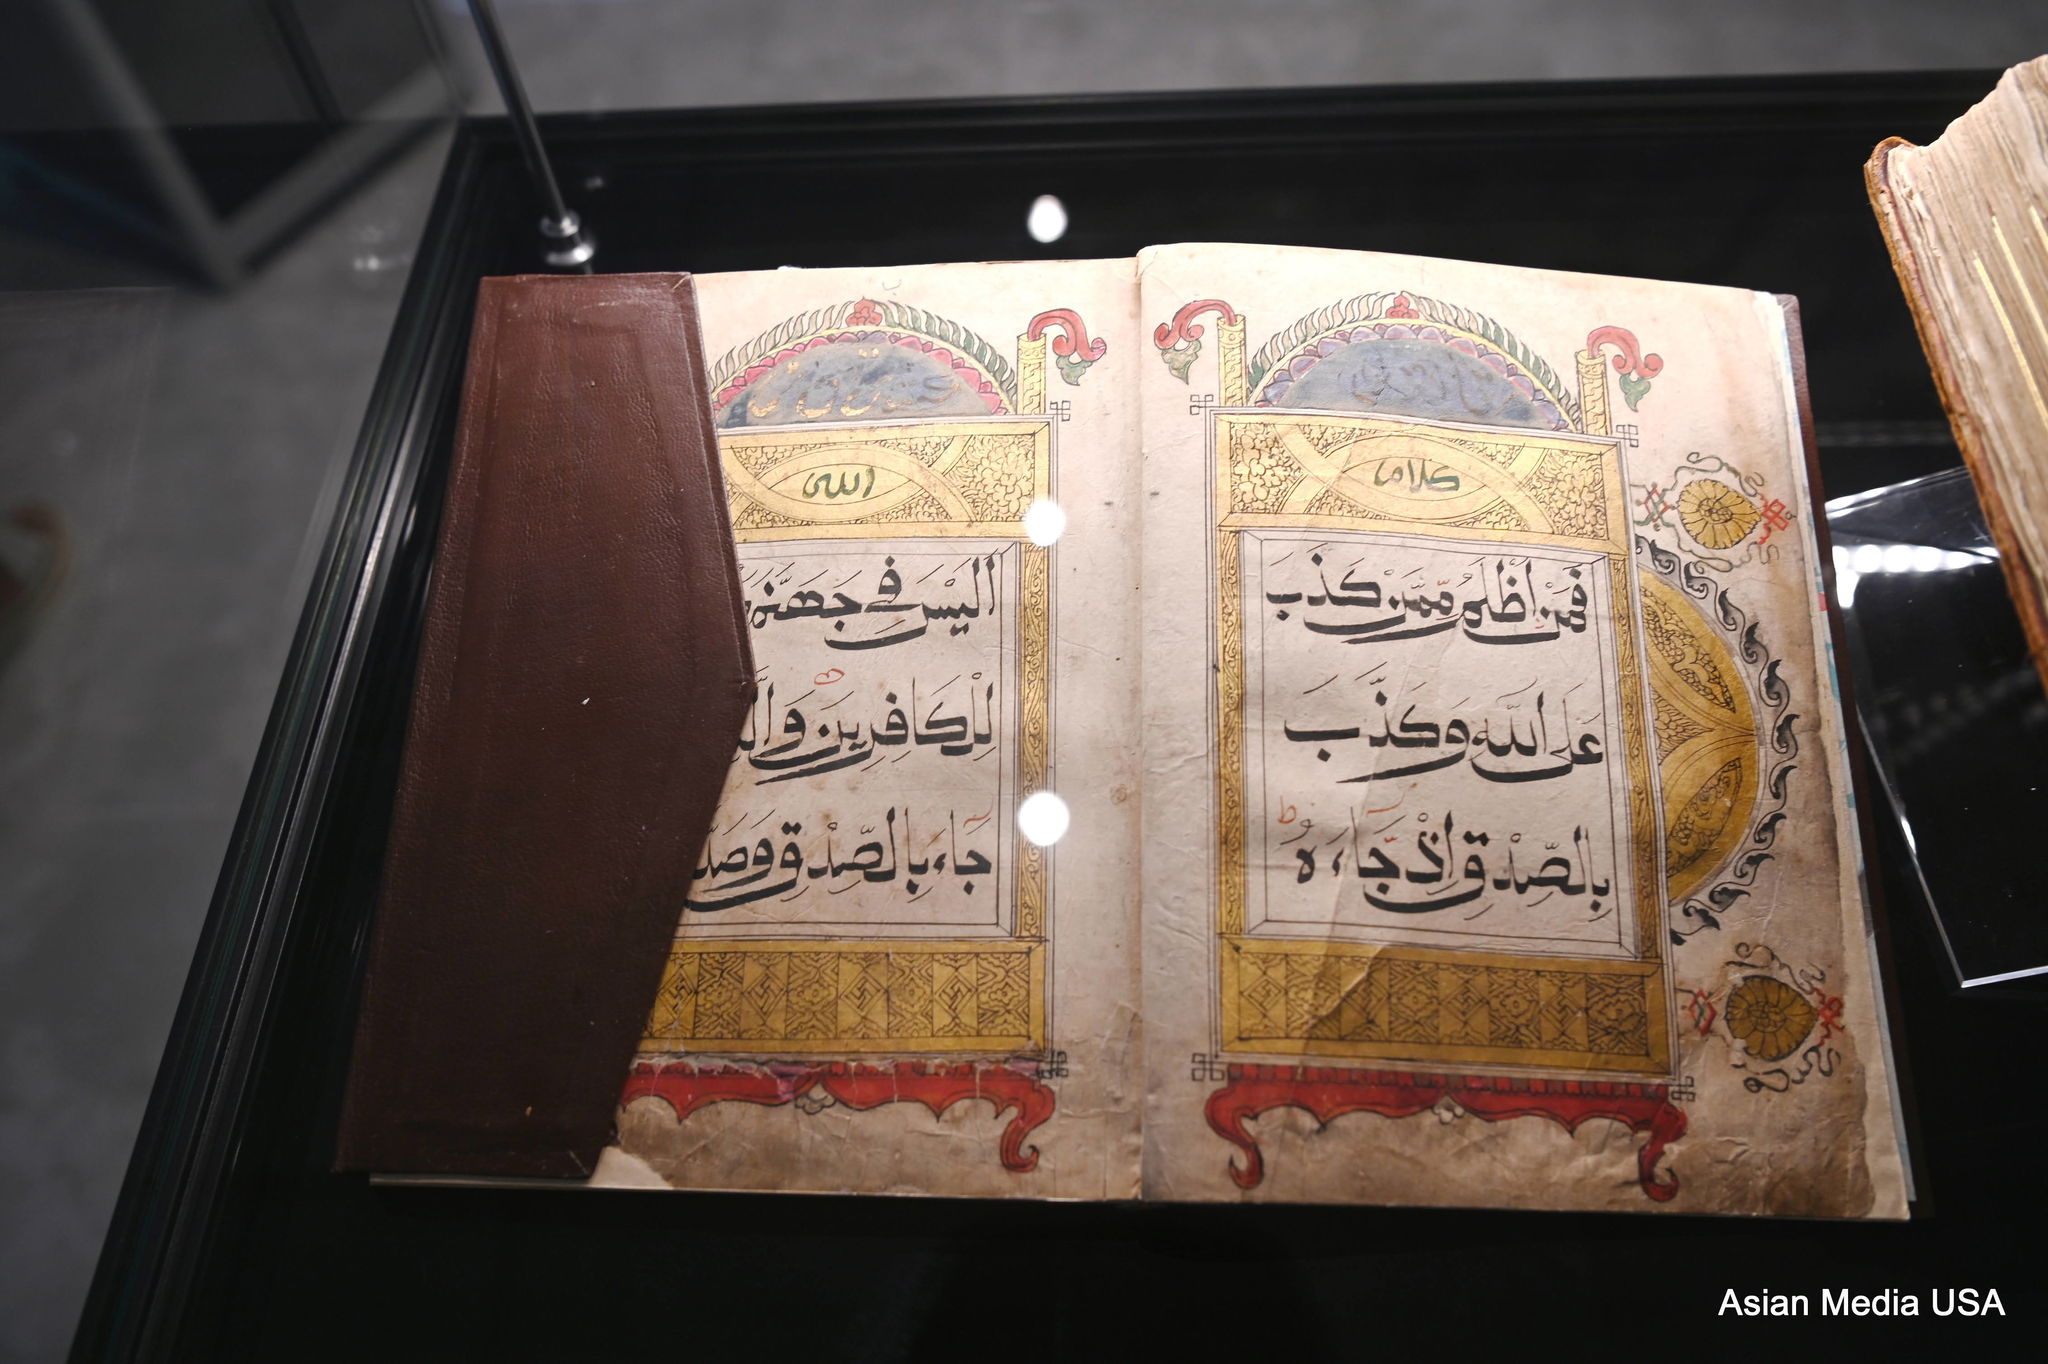 كلام
فَمَنْ اَظْلَمُ مِمَّنْ كَذَبَ
عَلَى اللّٰهِ وَكَذَّبَ
بِالصِّدْقِ اِذْ جَآءَهُ
اللهى
اَلَيْسَ فِى جَهَنَّمَ
لِلْكَافِرِينَ وَالَّ
جَآءَ بِالصِّدْقِ وَصَدَّ
Asian Media USA